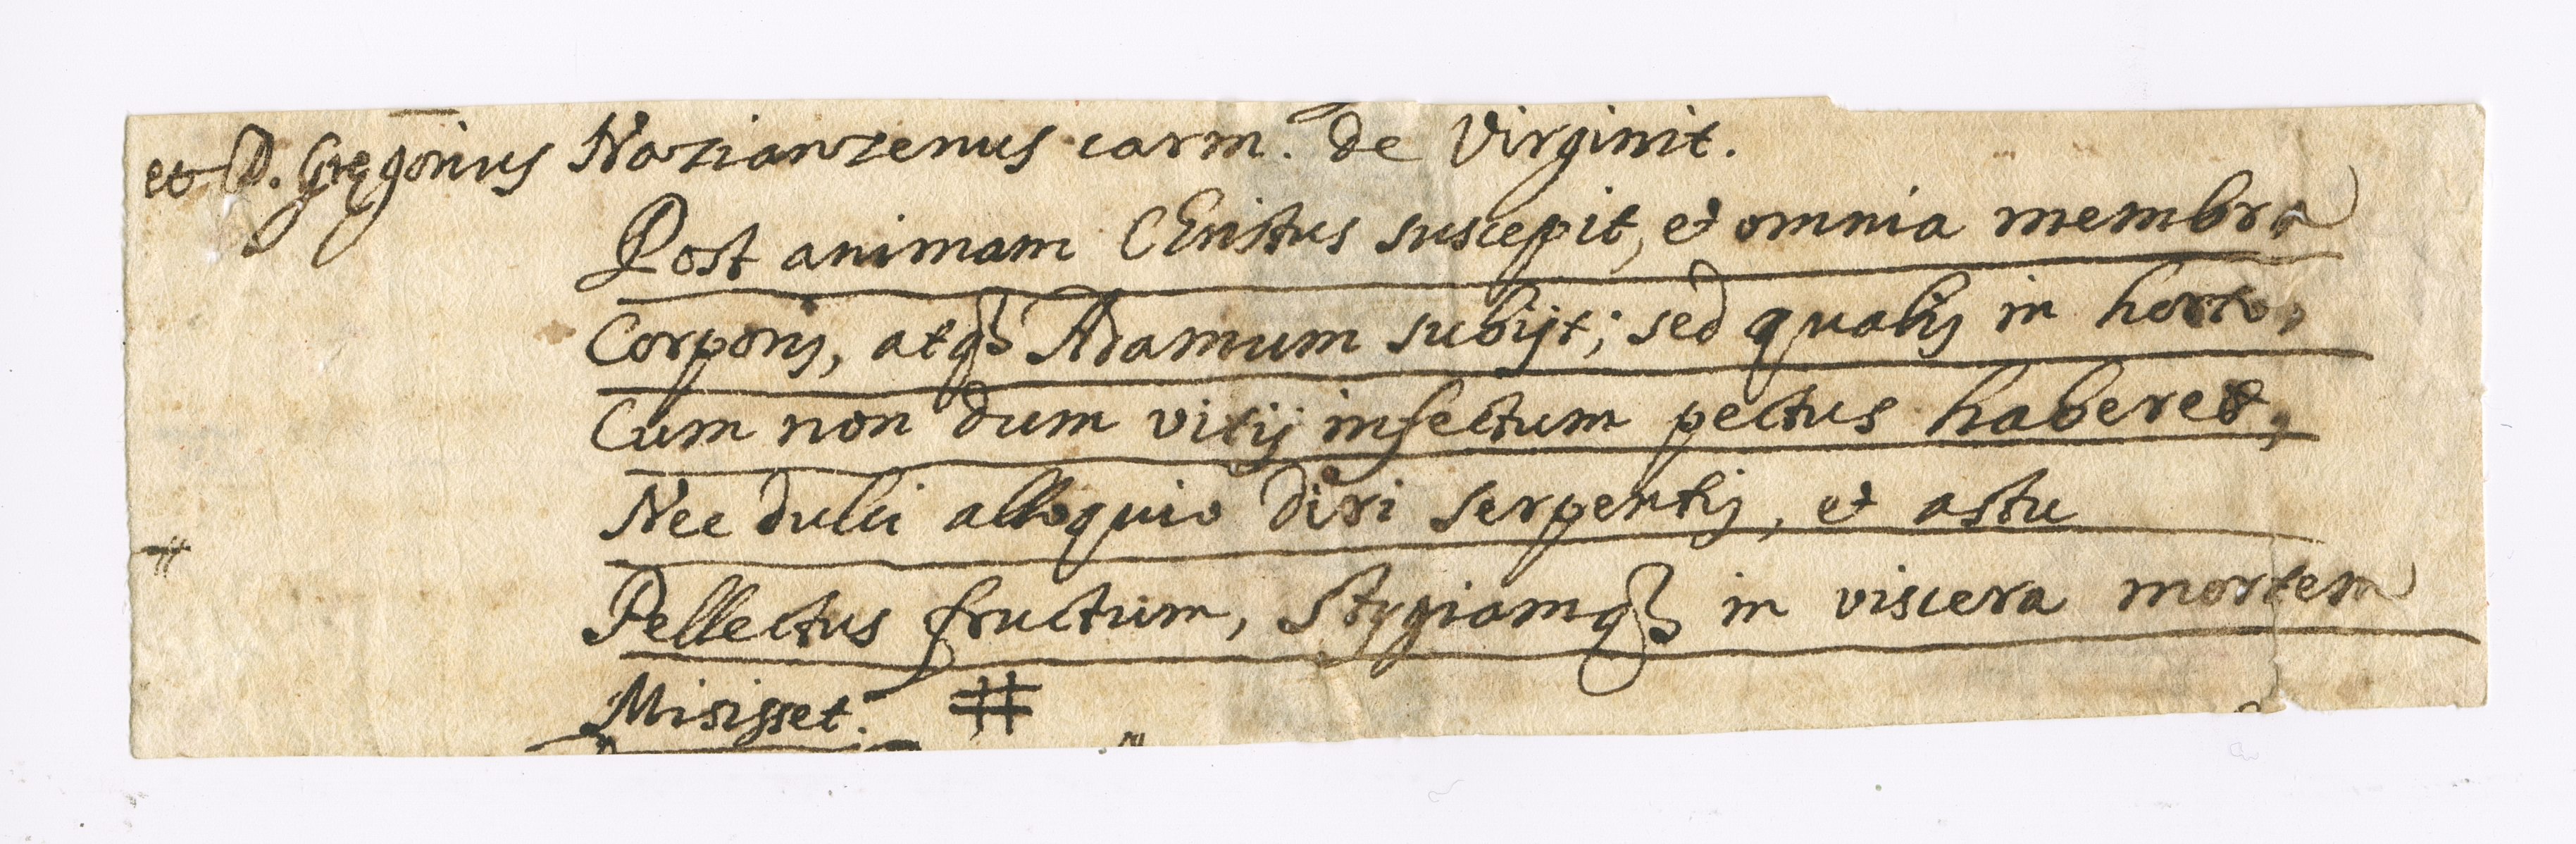 et D. Gręgorius Nazianzenus carm. de Virginit.
Post animam Christus suscepit, et omnia membra
Corporis, atqȝ Adamum subijt; sed qualis in horto,
Cum non dum vitijs infectum pectus haberet,
Nec dulci alloquio diri serpentis, et astu
Pellectus fructum, Stygiamqȝ in viscera mortem
Misisset. #